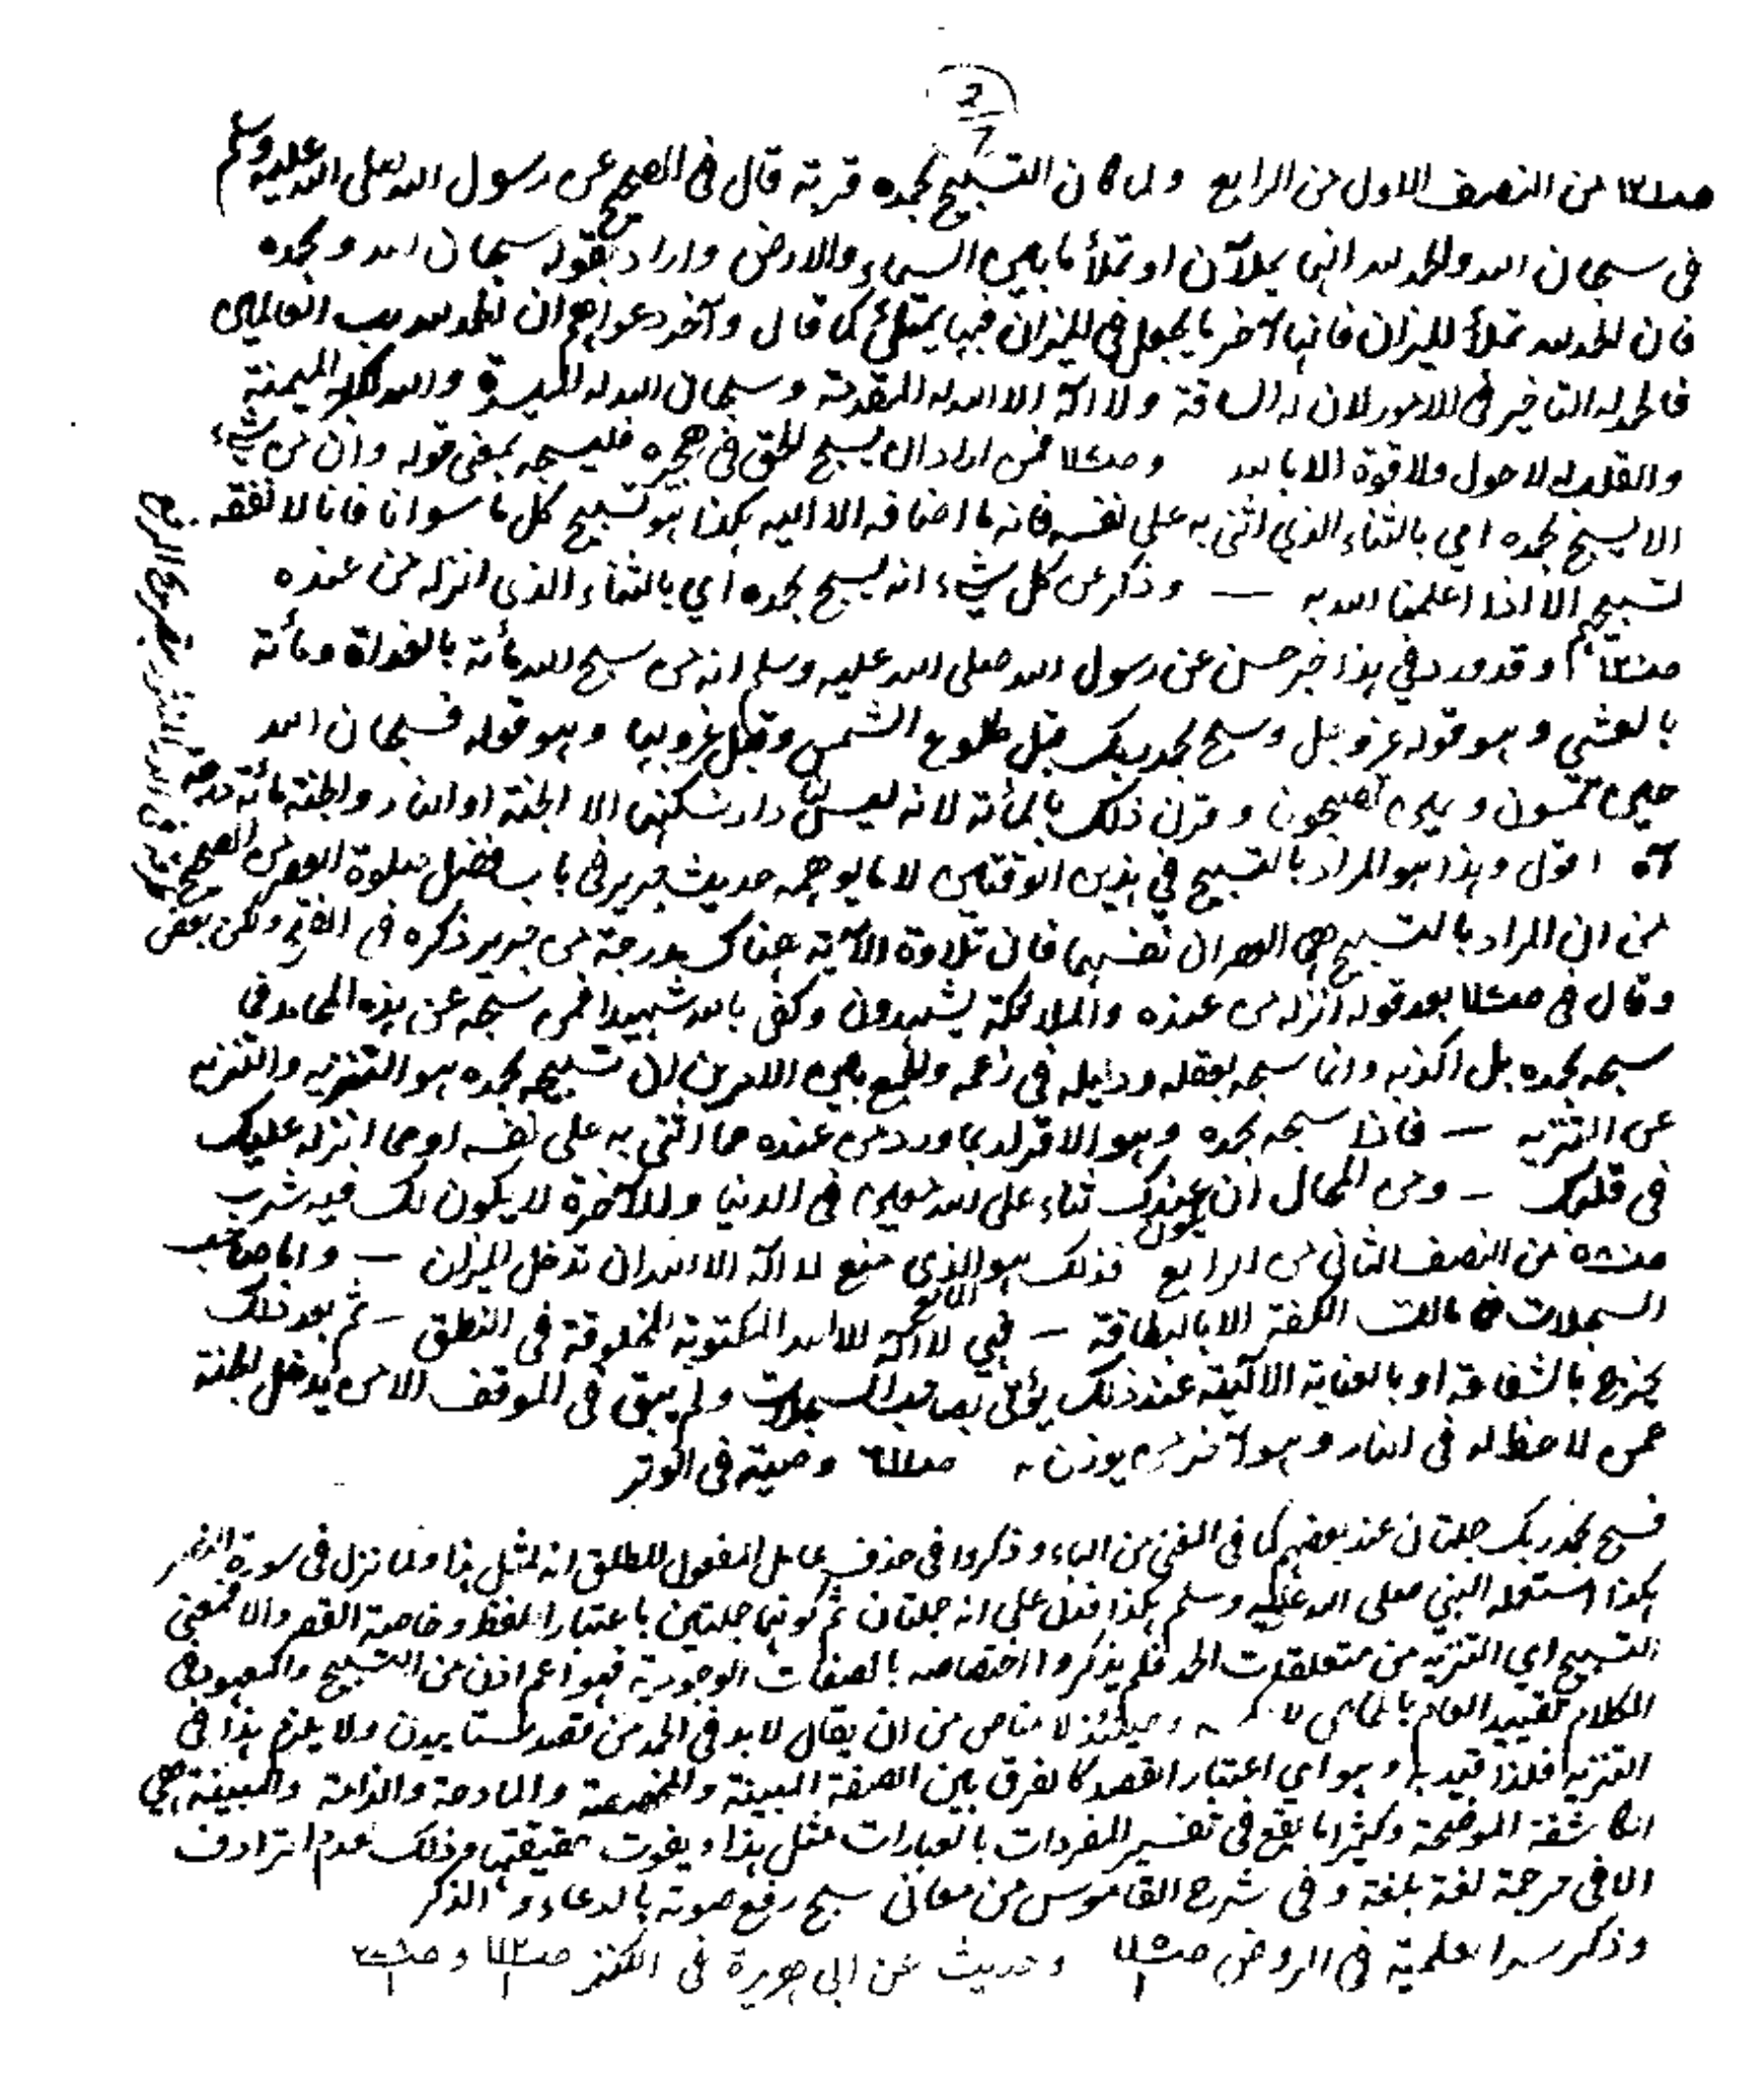 2/7
من النصف الاول من الرابع ولما كان التسبيح بحمده قربة قال فى الصحيح عن رسول الله صلى الله عليه وسلم
فى سبحان الله والحمد لله انهما يملآن او تملأ ما بين السماء والارض واراد بقوله سبحان الله وبحمده
فان الحمد لله تملأ الميزان فانها آخر ما يجعل فى الميزان فبها يمتلئ كما قال وآخر دعواهم ان الحمد لله رب العالمين
فالحمد له التاخير فى الامور لان له الساقة ولا اله الا الله له المقدمة وسبحان الله له الميسرة والله اكبر له الميمنة
والقلب له لا حول ولا قوة الا بالله فمن اراد ان يسبح الحق فى فليسبحه بمعنى قوله وان من شيء
الا يسبح بحمده اي بالثناء الذي اثنى به على نفسه فانه ما اضافه الا اليه هكذا هو تسبيح كل ما سوانا فانا لا نفقه
تسبيحهم الا اذا اعلمنا الله به — وذكر عن كل شيء انه يسبح بحمده اي بالثناء الذى انزله من عنده
وقد ورد في هذا خبر حسن عن رسول الله صلى الله عليه وسلم انه من سبح الله مائة بالغداة ومائة
بالعشي وهو قوله عز وجل وسبح بحمد ربك قبل طلوع الشمس وقبل غروبها وهو قوله فسبحان الله
حين تمسون وحين تصبحون وقرن ذلك بالمائة لانه ليس لنا دار نسكنها الا الجنة او النار والجنة مائة درجة
اه اقول وهذا هو المراد بالتسبيح في هذين الوقتين لا ما يوهمه حديث جرير فى باب فضل صلوة العصر من الصحيح
من ان المراد بالتسبيح هي العصران نفسهما فان تلاوة الآية هناك مدرجة من جرير ذكره فى الفتح ولكن بعض
وقال فى بعد قوله انزله من عنده والملائكة يشهدون وكفى بالله شهيدا فمن سبحه عن هذه المحامد فما
سبحه بحمده بل اكذبه وانما سبحه بعقله ودليله فى زعمه والجمع بين الامرين ان تسبيحه بحمده هو التنزيه والتنزيه
عن التنزيه — فاذا سبحه بحمده وهو الاقرار بما ورد من عنده مما اثنى به على نفسه او مما انزله عليك
فى قلبك — ومن المحال ان يكون عندك ثناء على الله معين فى الدنيا والآخرة لا يكون لك فيه شرب
من النصف الثانى من الرابع فذلك هو الذى منع لا اله الا الله ان تدخل الميزان — واما صاحب
السجلات فما مالت الكفة الا بالبطاقة — فهي لا اله الا الله المكتوبة المخلوقة فى النطق — ثم بعد ذلك
يخرج بالشفاعة او بالعناية الالهية عند ذلك يؤتى بصاحب السجلات ولم يبق فى الموقف الا من يدخل الجنة
ممن لا حظ له فى النار وهو آخر من يوزن وصية فى الوتر
فسبح بحمد ربك جملتان عند بعضهم كما فى المغني من الباء وذكروا فى حذف عامل المفعول المطلق انه لمثل هذا ولما نزل فى سورة النصر
هكذا استعمله النبي صلى الله عليه وسلم هكذا فدل على انه جملتان ثم كونهما جملتين باعتبار اللفظ وخاصة القصر والا فمعنى
التسبيح اي التنزيه من متعلقات الحمد فلم يذكروا اختصاصه بالصفات الوجودية فهو اعم اذن من التسبيح والمعهود فى
الكلام تقييد العام بالخاص وحينئذ لا مناص من ان يقال لابد فى الحمد من قصد ولا يلزم هذا فى
التنزيه فلذا قيد بها وهو اي اعتبار القصد كالفرق بين الصفة المبينة والمخصصة والمادحة والذامة والمبينة هي
الكاشفة الموضحة وكثيرا ما يقع فى تفسير المفردات بالعبارات مثل هذا ويفوت حقيقتها وذلك لعدم الترادف
الا فى ترجمة لغة بلغة وفى شرح القاموس من معانى سبح رفع صوته بالدعاء والذكر
وذكر سرا لعلمية فى الروض وحديث عن ابى هريرة فى الكنز